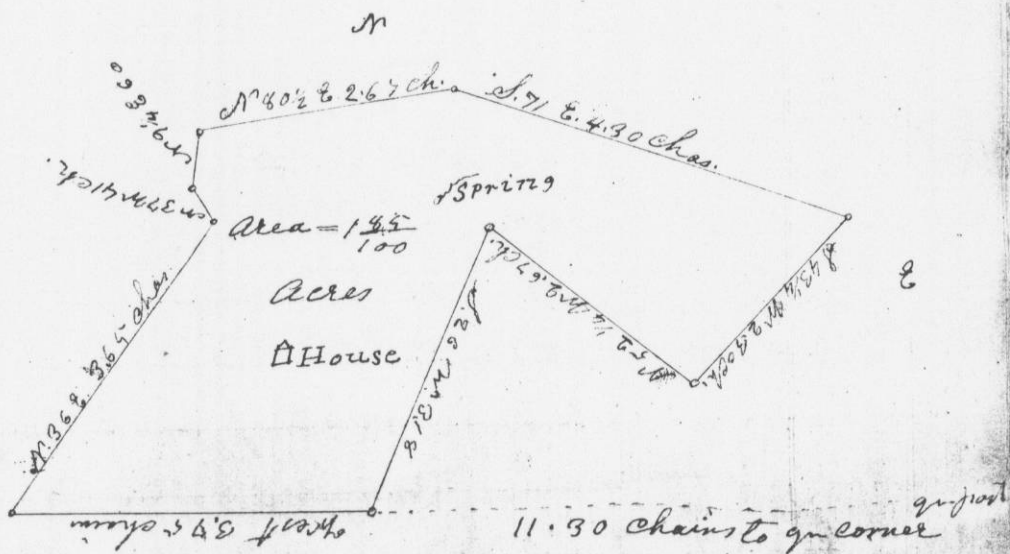 N
N 80½ E 2.67 ch.
S. 71 E. 4.30 Chas.
N 9¼ E 60
N 37 W 41 Ch.
√Spring
Area = 1 85/100
Acres
House
E
S 43¼ W 2.30 ch.
N 52 ¼ W 2.67 Ch.
N. 36 E. 3.65 chas.
West 3.75 chains
11.30 Chains to qr corner
qr post